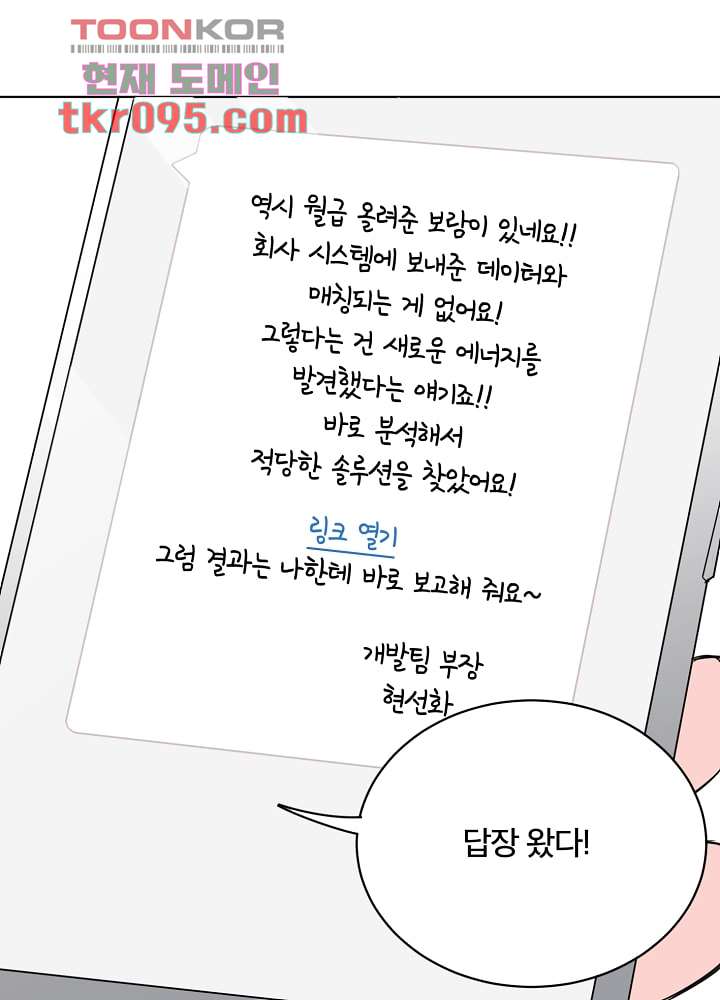 TOONKOR
현재 도메인
tkr095.com
역시 월급 올려준 보람이 있네요!!
회사 시스템에 보내준 데이터와
매칭되는 게 없어요!
그렇다는 건 새로운 에너지를
발견했다는 얘기죠!!
바로 분석해서
적당한 솔루션을 찾았어요!
링크 열기
그럼 결과는 나한테 바로 보고해 줘요~
개발팀 부장
현선화
답장 왔다!